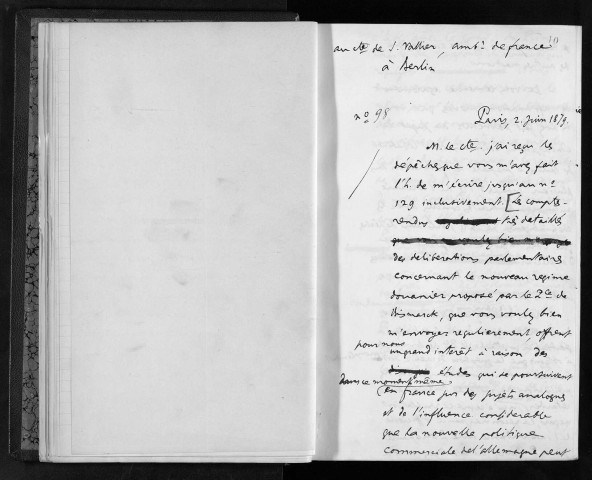 10
au cte de S. Vallier, ambr de france
à Berlin
no 98
Paris, 2. Juin 1879.
M. le cte. j'ai reçu les
dépêches que vous m'avez fait
l'h. de m'écrire jusqu'au no
129 inclusivement. [Les comptes-
rendus très détaillés
des délibérations parlementaires
concernant le nouveau régime
douanier proposé par le Pce de
Bismarck, que vous voulez bien
m'envoyer régulièrement, offrent
pour nous
un grand intérêt à raison des
études qui se poursuivent
dans ce moment même
en france sur des sujets analogues
et de l'influence considérable
que la nouvelle politique
commerciale de l'allemagne peut